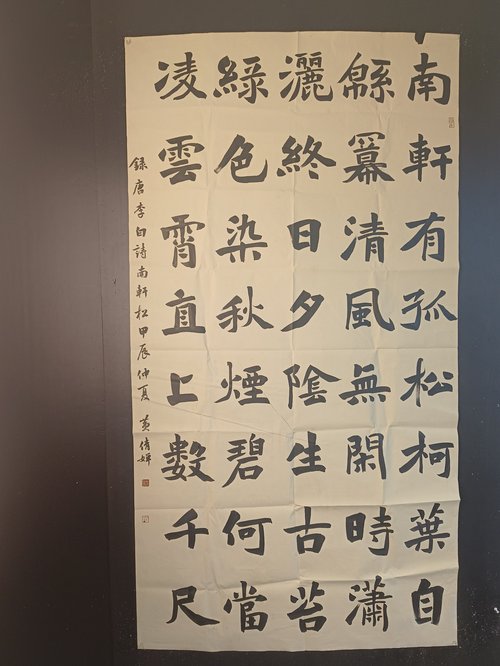 南軒有孤松柯葉自
緜羃清風無閑時瀟
灑終日夕陰生古苔
綠色染秋煙碧何當
凌雲霄直上數千尺
錄唐李白詩南軒松甲辰仲夏 黃倩嬋